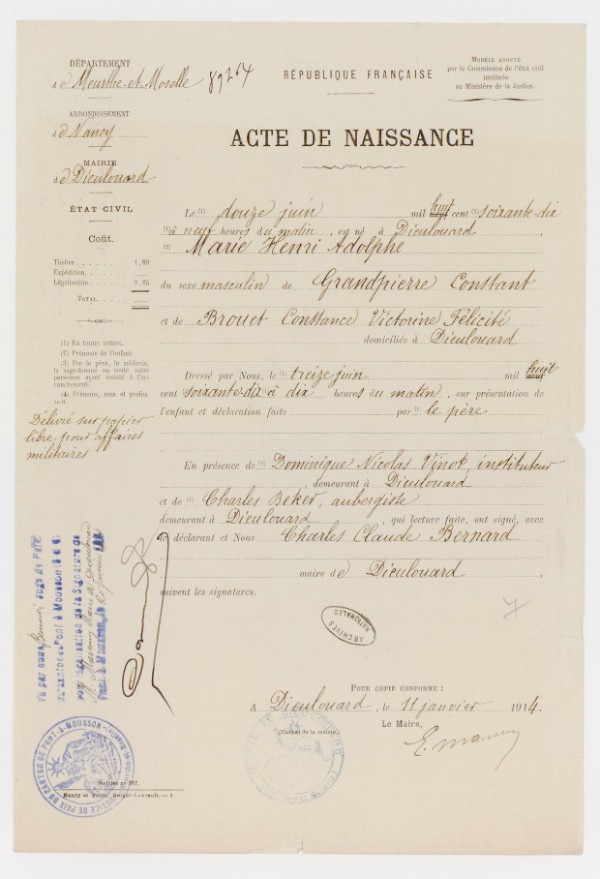 DÉPARTEMENT
d e Meurthe-et-Moselle
89264
RÉPUBLIQUE FRANÇAISE
MODÈLE ADOPTÉ
par la Commission de l'état civil
instituée
au Ministère de la Justice.
ARRONDISSEMENT
d e Nancy
MAIRIE
d e Dieulouard
ÉTAT CIVIL
Coût.
Timbre 1,80
Expédition
Légalisation 0,25
TOTAL
(1) En toutes lettres.
(2) Prénoms de l'enfant.
(3) Par le père, le médecin,
la sage-femme ou toute autre
personne ayant assisté à l'accouchement.
(4) Prénoms, nom et profession.
Délivré sur papier
libre pour affaires
militaires
ACTE DE NAISSANCE
Le (1) douze juin mil huit cent (1) soixante-dix
(1) à neuf heures du matin, est né à Dieulouard,
(2) Marie Henri Adolphe
du sexe masculin de Grandpierre Constant
et de Brouet Constance Victorine Félicité
domiciliés à Dieulouard
Dressé par Nous, le treize juin mil huit
cent soixante-dix à dix heures du matin, sur présentation de
l'enfant et déclaration faite par (3) le père
En présence de (4) Dominique Nicolas Vinot, instituteur
demeurant à Dieulouard
et de (4) Charles Beker, aubergiste
demeurant à Dieulouard, qui lecture faite, ont signé, avec
déclarant et Nous Charles Claude Bernard
maire de Dieulouard
suivent les signatures.
ARCHIVES
NATIONALES
POUR COPIE CONFORME :
A Dieulouard, le 11 janvier 1914.
(Cachet de la mairie.)
Le Maire,
Vu par nous JUGE DE PAIX
du canton de Pont à Mousson
pour légalisation de la Signature de
Pont à Mousson, le
JUSTICE DE PAIX DU CANTON DE PONT-À-MOUSSON